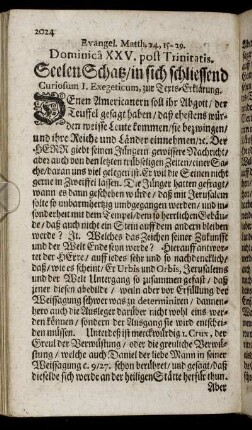 2024
Evangel. Matth. 24, 15-29.
Dominicâ XXV. post Trinitatis.
Seelen Schatz/in sich schliessend
Curiosum I. Exegeticum, zur Texts-Erklärung.
DEnen Americanern soll ihr Abgott/ der
Teuffel gesagt haben/ daß ehestens wür-
den weisse Leute kommen/sie bezwingen/
und ihre Reiche und Länder einnehmen/rc. Der
HERR giebt seinen Jüngern gewissere Nachricht/
aber auch von den letzten trübseligen Zeiten/einer Sa-
che/daran uns viel gelegen ist. Er wil die Seinen nicht
gerne in Zweiffel lassen. Die Jünger hatten gefragt/
wenn es denn geschehen würde/ daß mit Jerusalem
solte so unbarmhertzig umbgegangen werden/ und in-
sonderheit mit dem Tempel/dem so herrlichen Gebäu-
de/ daß auch nicht ein Stein auff dem andern bleiben
werde? It. Welches das Zeichen seiner Zukunfft
und der Welt Ende seyn werde? Hierauff antwor-
tet der HErr/ auff iedes sehr und so nachdencklich/
daß/wie es scheint/ Er Urbis und Orbis, Jerusalems
und der Welt Untergang so zusammen gefaßt/ daß
einer diesen abbilde/ worin aber vor Erfüllung der
Weissagung schwer was zu determiniren/ dannen-
hero auch die Ausleger darüber nicht wohl eins wer-
den können/ sondern der Ausgang sie wird entschei-
den müssen. Unterdeß ist merckwürdig 1. Crux, der
Greul der Verwüstung/ oder die greuliche Verwü-
stung/ welche auch Daniel der liebe Mann in seiner
Weissagung c. 9/27. schon berühret/ und gesagt/daß
dieselbe sich werde an der heiligen Stätte herfür thun.
Aber